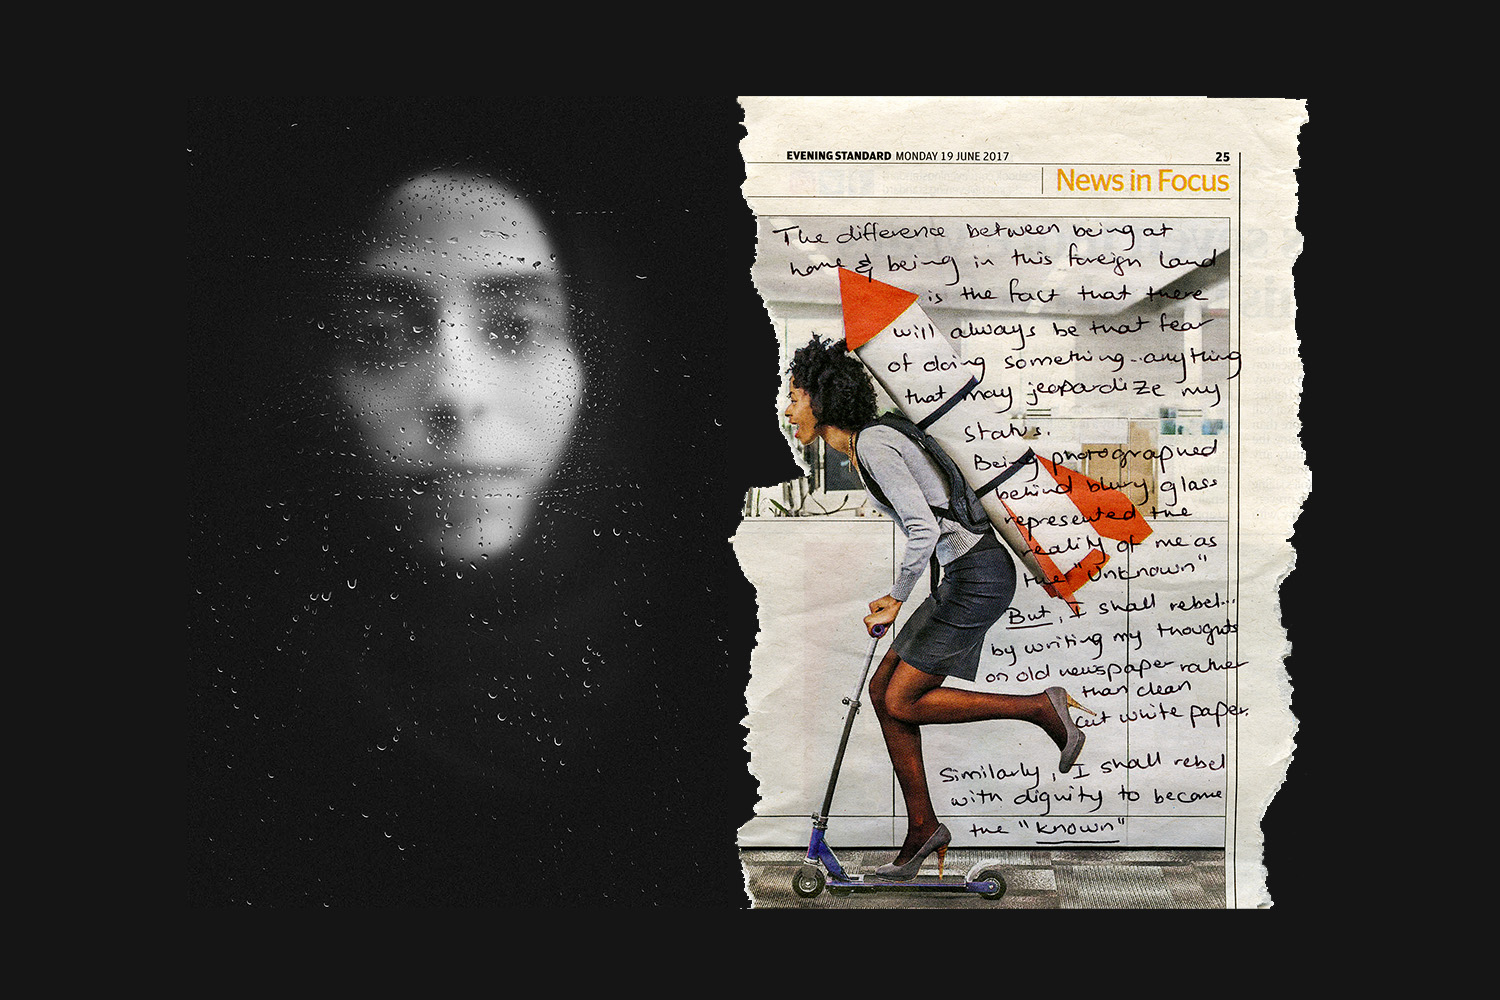 EVENING STANDARD MONDAY 19 JUNE 2017 25
News in Focus
The difference between being at
home & being in this foreign land
is the fact that there
will always be that fear
of doing something--anything
that may jeopardize my
status.
Being photographed
behind blurry glass
represented the
reality of me as
the "Unknown"
But, I shall rebel...
by writing my thoughts
on old newspaper rather
than clean
cut white paper.
Similarly, I shall rebel
with dignity to become
the "known"